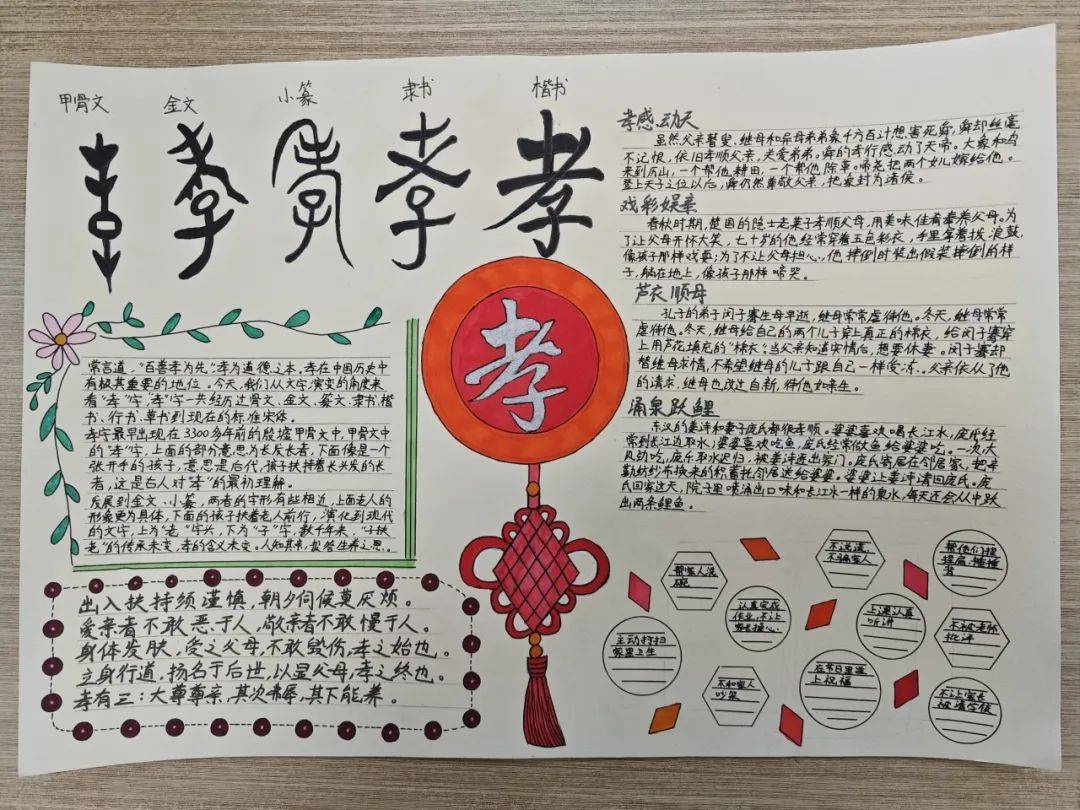 甲骨文
金文
小篆
隶书
楷书
孝
孝
孝
孝
孝
孝
常言道，“百善孝为先，”孝为道德之本，孝在中国历史中
有极其重要的地位。今天，我们从文字演变的角度来
看“孝”字，“孝”字一共经历过骨文、金文、篆文、隶书、楷
书、行书、草书到现在的标准宋体。
孝字最早出现在3300多年前的殷墟甲骨文中，甲骨文中
的“孝”字，上面的部分意思为长发长者，下面像是一个
张开手的孩子，意思是后代，孩子扶持着长头发的长
者，这是古人对“孝”的最初理解。
发展到金文、小篆，两者的字形有些相近，上面老人的
形象更为具体，下面的孩子扶着老人前行，演化到现代
的文字，上为“老”字头，下为“子”字，数千年来，“子扶
老”的传承未变，孝的含义未变。人知其来，报答生养之恩。
出入扶持须谨慎，朝夕伺候莫厌烦。
爱亲者不敢恶于人，敬亲者不敢慢于人。
身体发肤，受之父母，不敢毁伤，孝之始也。
立身行道，扬名于后世，以显父母，孝之终也。
孝有三：大尊尊亲，其次弗辱，其下能养。
孝感动天
虽然父亲瞽叟、继母和异母弟弟象千方百计想害死舜，舜却丝毫
不记恨，依旧孝顺父亲，关爱弟弟。舜的孝行感动了天帝。大象和鸟
来到历山，一个帮他耕田，一个帮他除草。尧把两个女儿嫁给他。
登上天子之位以后，舜仍然尊敬父亲，把象封为诸侯。
戏彩娱亲
春秋时期，楚国的隐士老莱子孝顺父母，用美味佳肴奉养父母。为
了让父母开怀大笑，七十岁的他经常穿着五色彩衣，手里拿着拨浪鼓，
像孩子那样戏耍；为了不让父母担心，他摔倒时装出假装摔倒的样
子，躺在地上，像孩子那样啼哭。
芦衣顺母
孔子的弟子闵子骞生母早逝，继母常常虐待他。冬天，继母常常
虐待他。冬天，继母给自己的两个儿子穿上真正的棉衣，给闵子骞穿
上用芦花填充的“棉衣”。当父亲知道实情后，想要休妻。闵子骞却
替继母求情，不希望继母的儿子跟自己一样受冻。父亲依从了他
的请求，继母也改过自新，待他如亲生。
涌泉跃鲤
东汉的姜诗和妻子庞氏都很孝顺。婆婆喜欢喝长江水，庞氏经
常到长江边取水；婆婆喜欢吃鱼，庞氏经常做鱼给婆婆吃。一次，大
风劲吃，庞氏取水迟归，被姜诗逐出家门。庞氏寄居在邻居家，把辛
勤纺纱布换来的积蓄托邻居送给婆婆。婆婆让姜诗请回庞氏。庞
氏回家这天，院子里喷涌出口味和长江水一样的泉水，每天还会从中跃
出两条鲤鱼。
帮家人洗
碗
不说谎，
不骗家人
帮他们揉
揉肩，捶捶
背
认真完成
作业，不让
家长操心。
上课认真
听讲
不被老师
批评
主动打扫
家里卫生
不和家人
吵架
在节日里送
上祝福
不让家长
被请学校